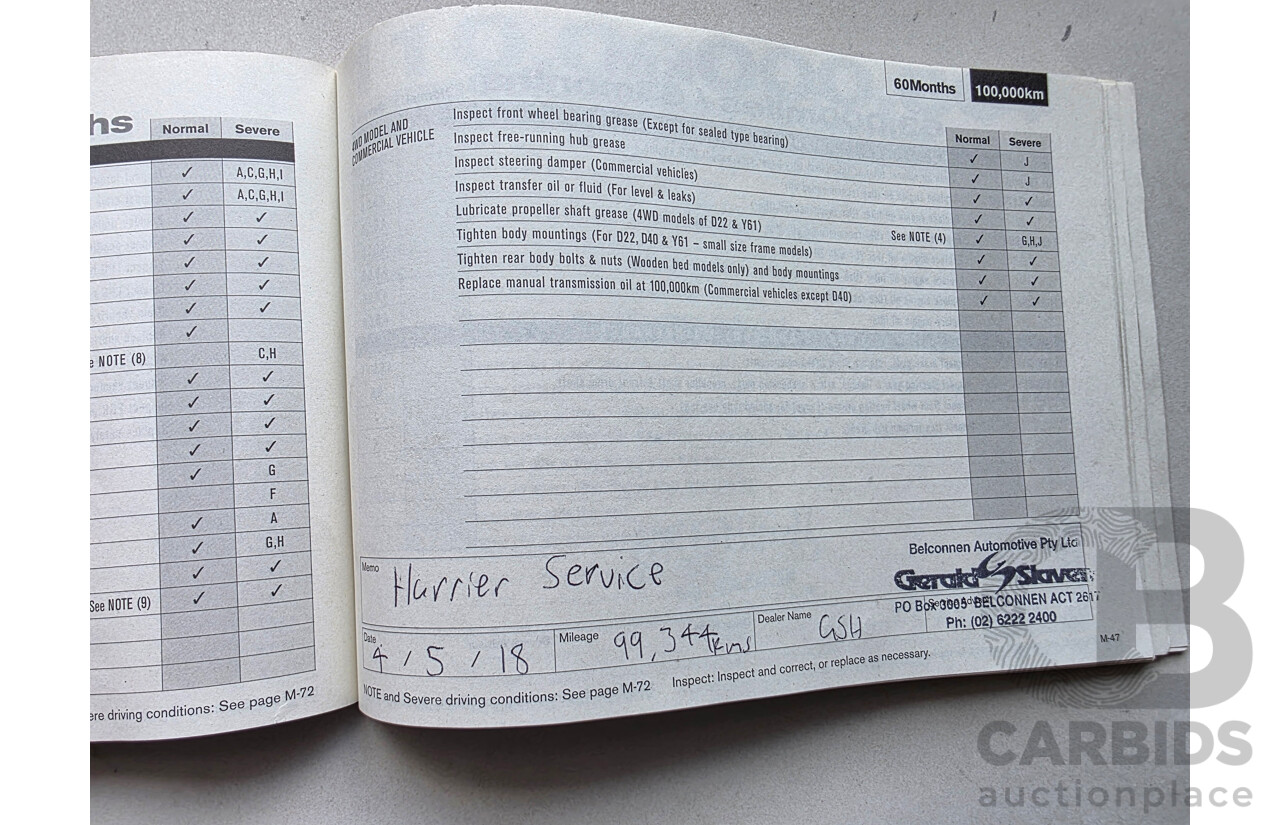 hs
Normal Severe
✓ A,C,G,H,I
✓ A,C,G,H,I
✓ ✓
✓ ✓
✓ ✓
✓ ✓
✓ ✓
✓
e NOTE (8) C,H
✓ ✓
✓ ✓
✓ ✓
✓ ✓
✓ G
F
✓ A
✓ G,H
✓ ✓
See NOTE (9) ✓ ✓
ere driving conditions: See page M-72
60Months 100,000km
Normal Severe
4WD MODEL AND
COMMERCIAL VEHICLE
Inspect front wheel bearing grease (Except for sealed type bearing) ✓ J
Inspect free-running hub grease ✓ J
Inspect steering damper (Commercial vehicles) ✓ ✓
Inspect transfer oil or fluid (For level & leaks) ✓ ✓
Lubricate propeller shaft grease (4WD models of D22 & Y61) See NOTE (4) ✓ G,H,J
Tighten body mountings (For D22, D40 & Y61 – small size frame models) ✓ ✓
Tighten rear body bolts & nuts (Wooden bed models only) and body mountings ✓ ✓
Replace manual transmission oil at 100,000km (Commercial vehicles except D40) ✓ ✓
Memo Harrier Service
Belconnen Automotive Pty Ltd
Gerald Slaven
PO Box 3005 BELCONNEN ACT 2617
Ph: (02) 6222 2400
Date 4 / 5 / 18 Mileage 99,344kms Dealer Name GSH
NOTE and Severe driving conditions: See page M-72 Inspect: Inspect and correct, or replace as necessary.
M-47
B
CARBIDS
auctionplace